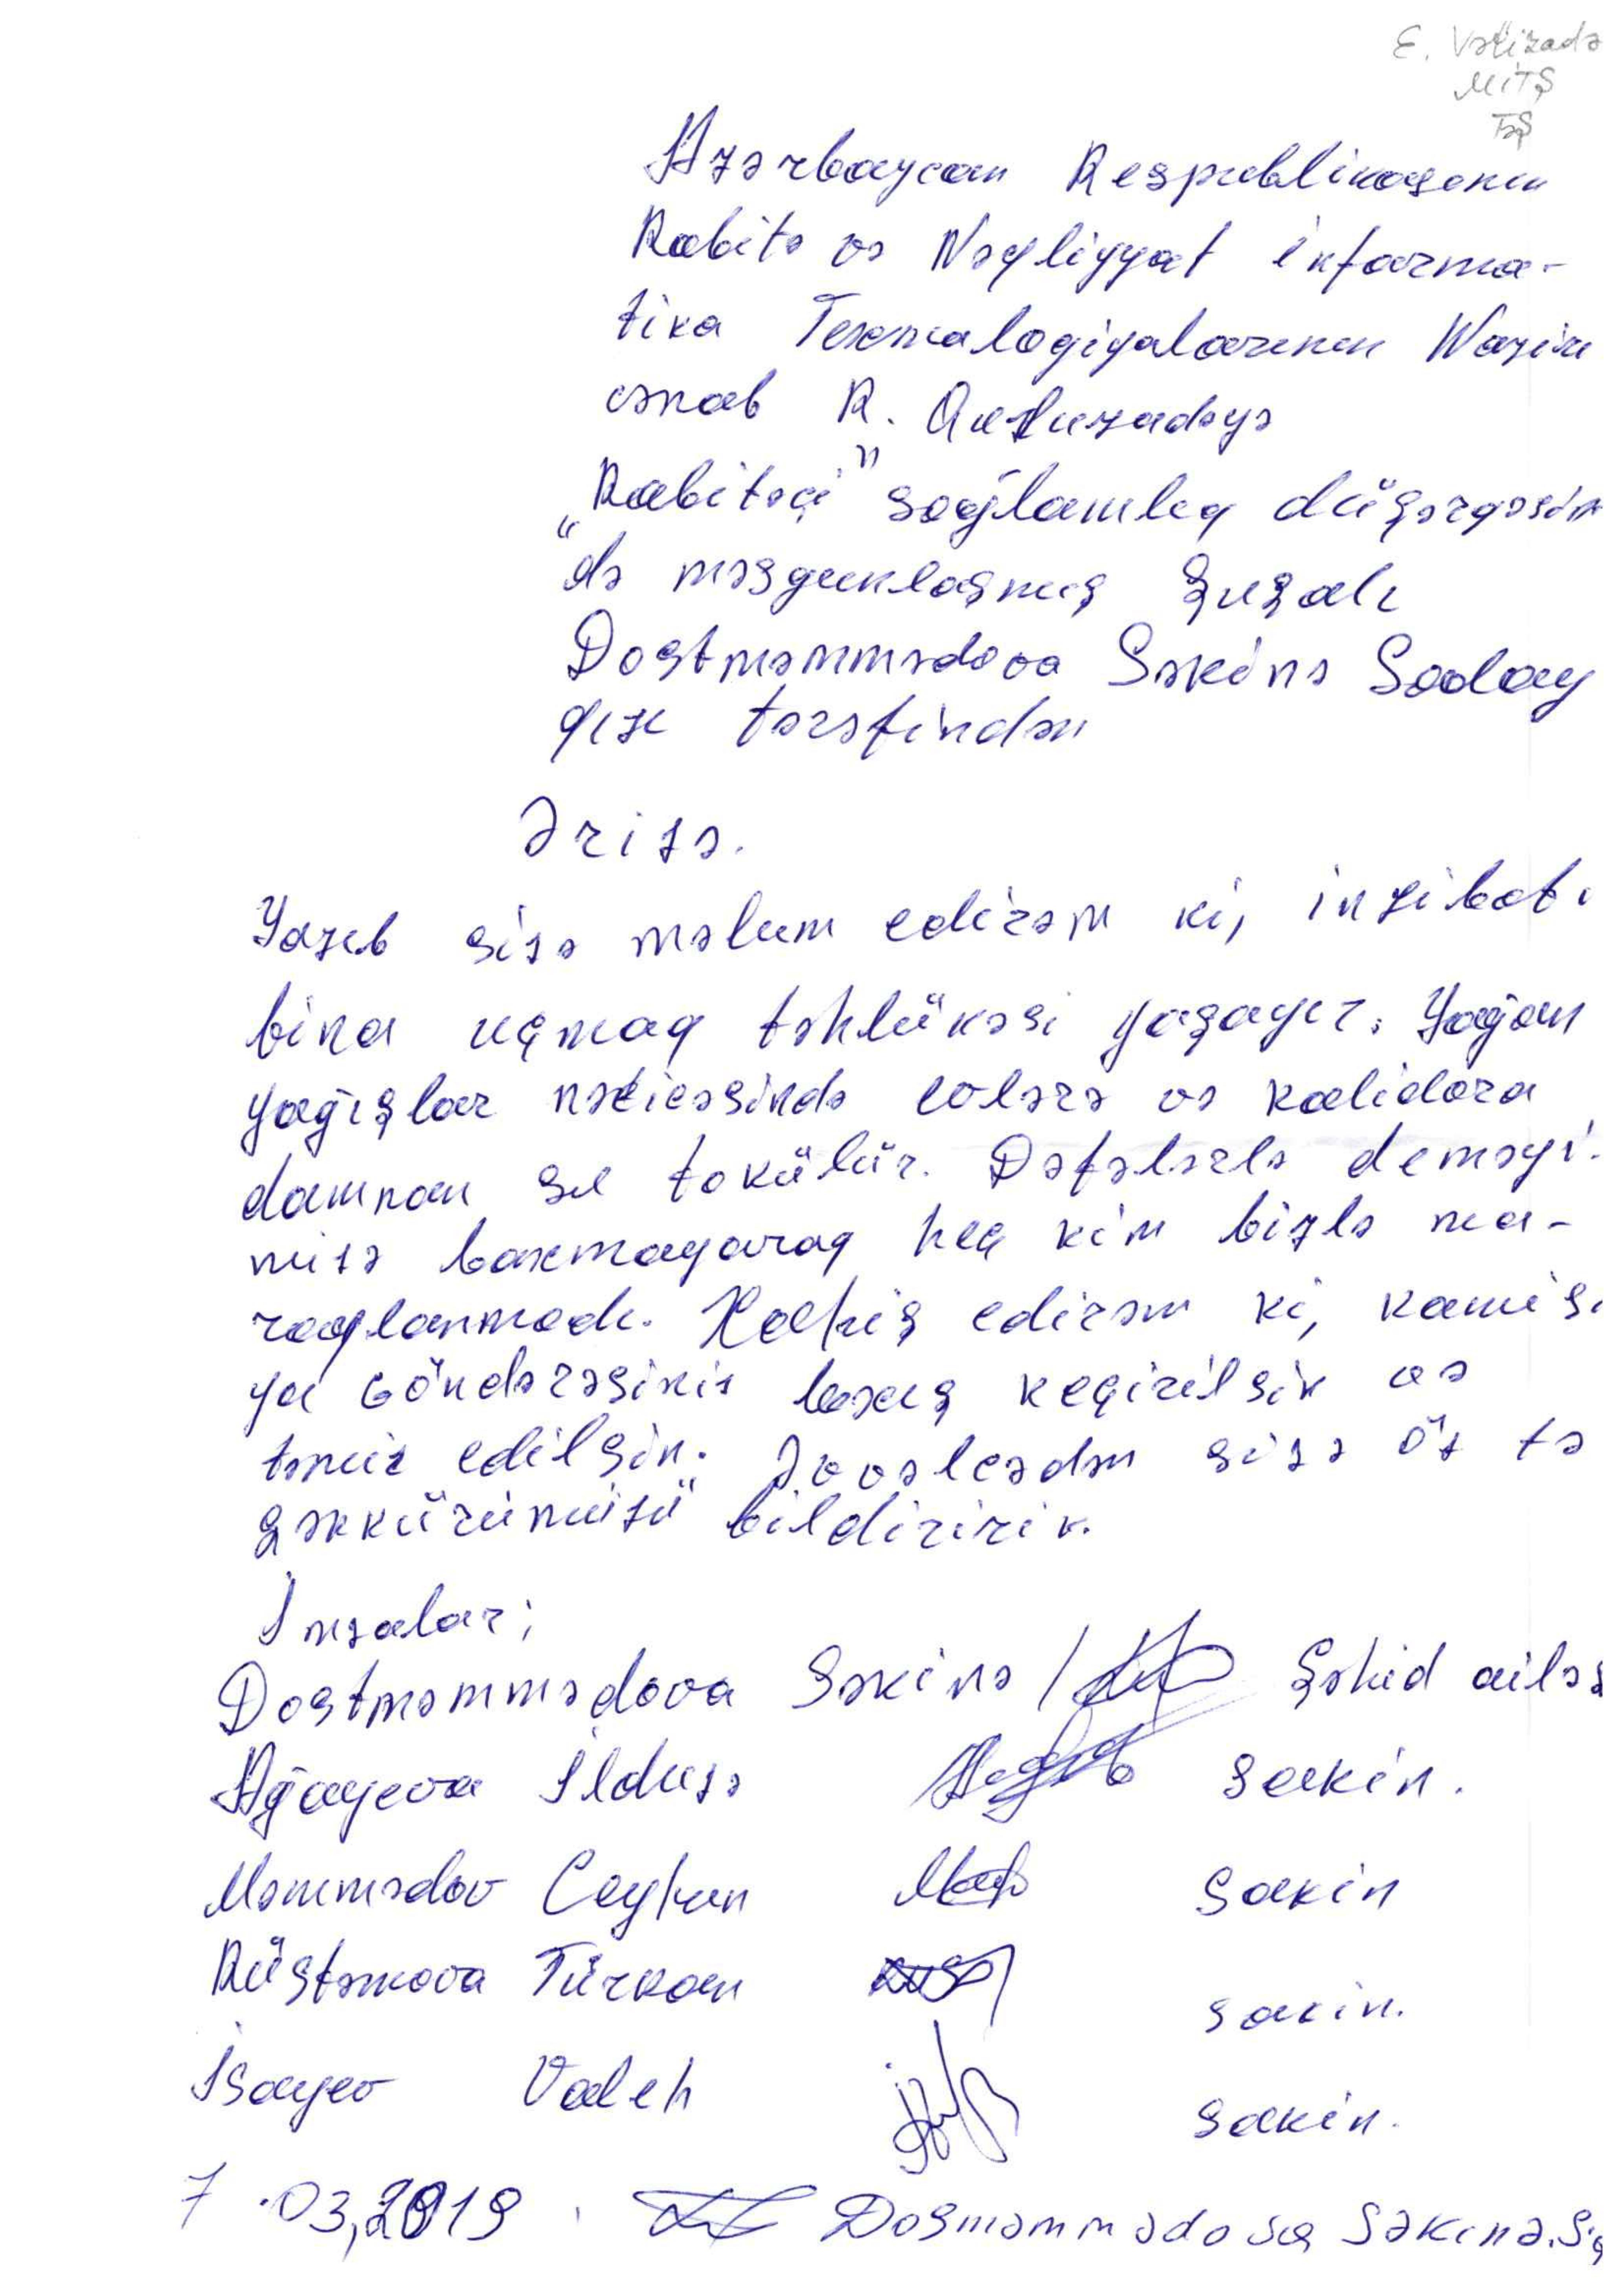 E. Vəlizadə
MİTŞ
TƏŞ
Azərbaycan Respublikasının
Rabitə və Nəqliyyat informa-
tika Texnalogiyalarının Naziri
cənab R. Quluzadəyə
"Rabitəçi" sağlamlıq düşərgəsin
də məsgunlaşmış Şuşalı
Dostməmmədova Səkinə Soolay
qızı tərəfindən
Ərizə.
Yazıb sizə məlum edirəm ki, inzibati
bina uçmaq təhlükəsi yaşayır. Yağan
yağışlar nəticəsində evlərə və kalidora
damnan su tökülür. Dəfələrlə deməyi-
mizə baxmayaraq heç kim bizlə ma-
raqlanmadı. Xahiş edirəm ki, kamisi
ya Göndərəsiniz baxış keçirilsin və
təmir edilsin. Əvvəlcədən sizə öz tə
şəkkürümüzü bildiririk.
İmzalar;
Dostməmmədova Səkinə Şəhid ailəs
Ağayeva İlduzə sakin.
Məmmədov Ceyhun Sakin
Rüstəmova Türkan sakin.
İsayev Valeh sakin.
7.03,2019 Dosməmmədova Səkinə.